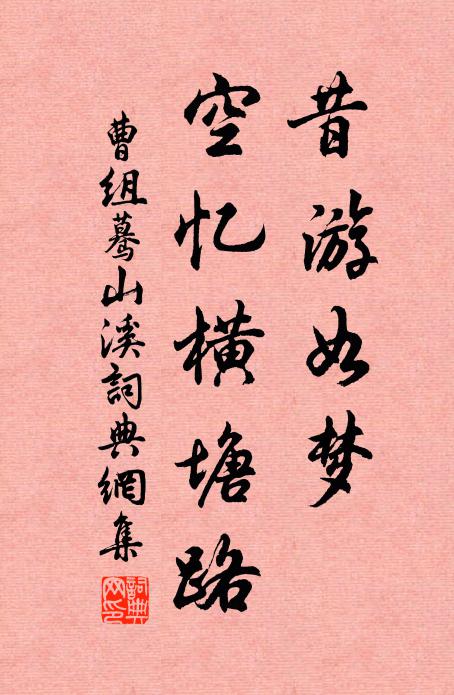 昔游如梦
空忆横塘路
曹组蓦山溪詞典網集
詞典网印